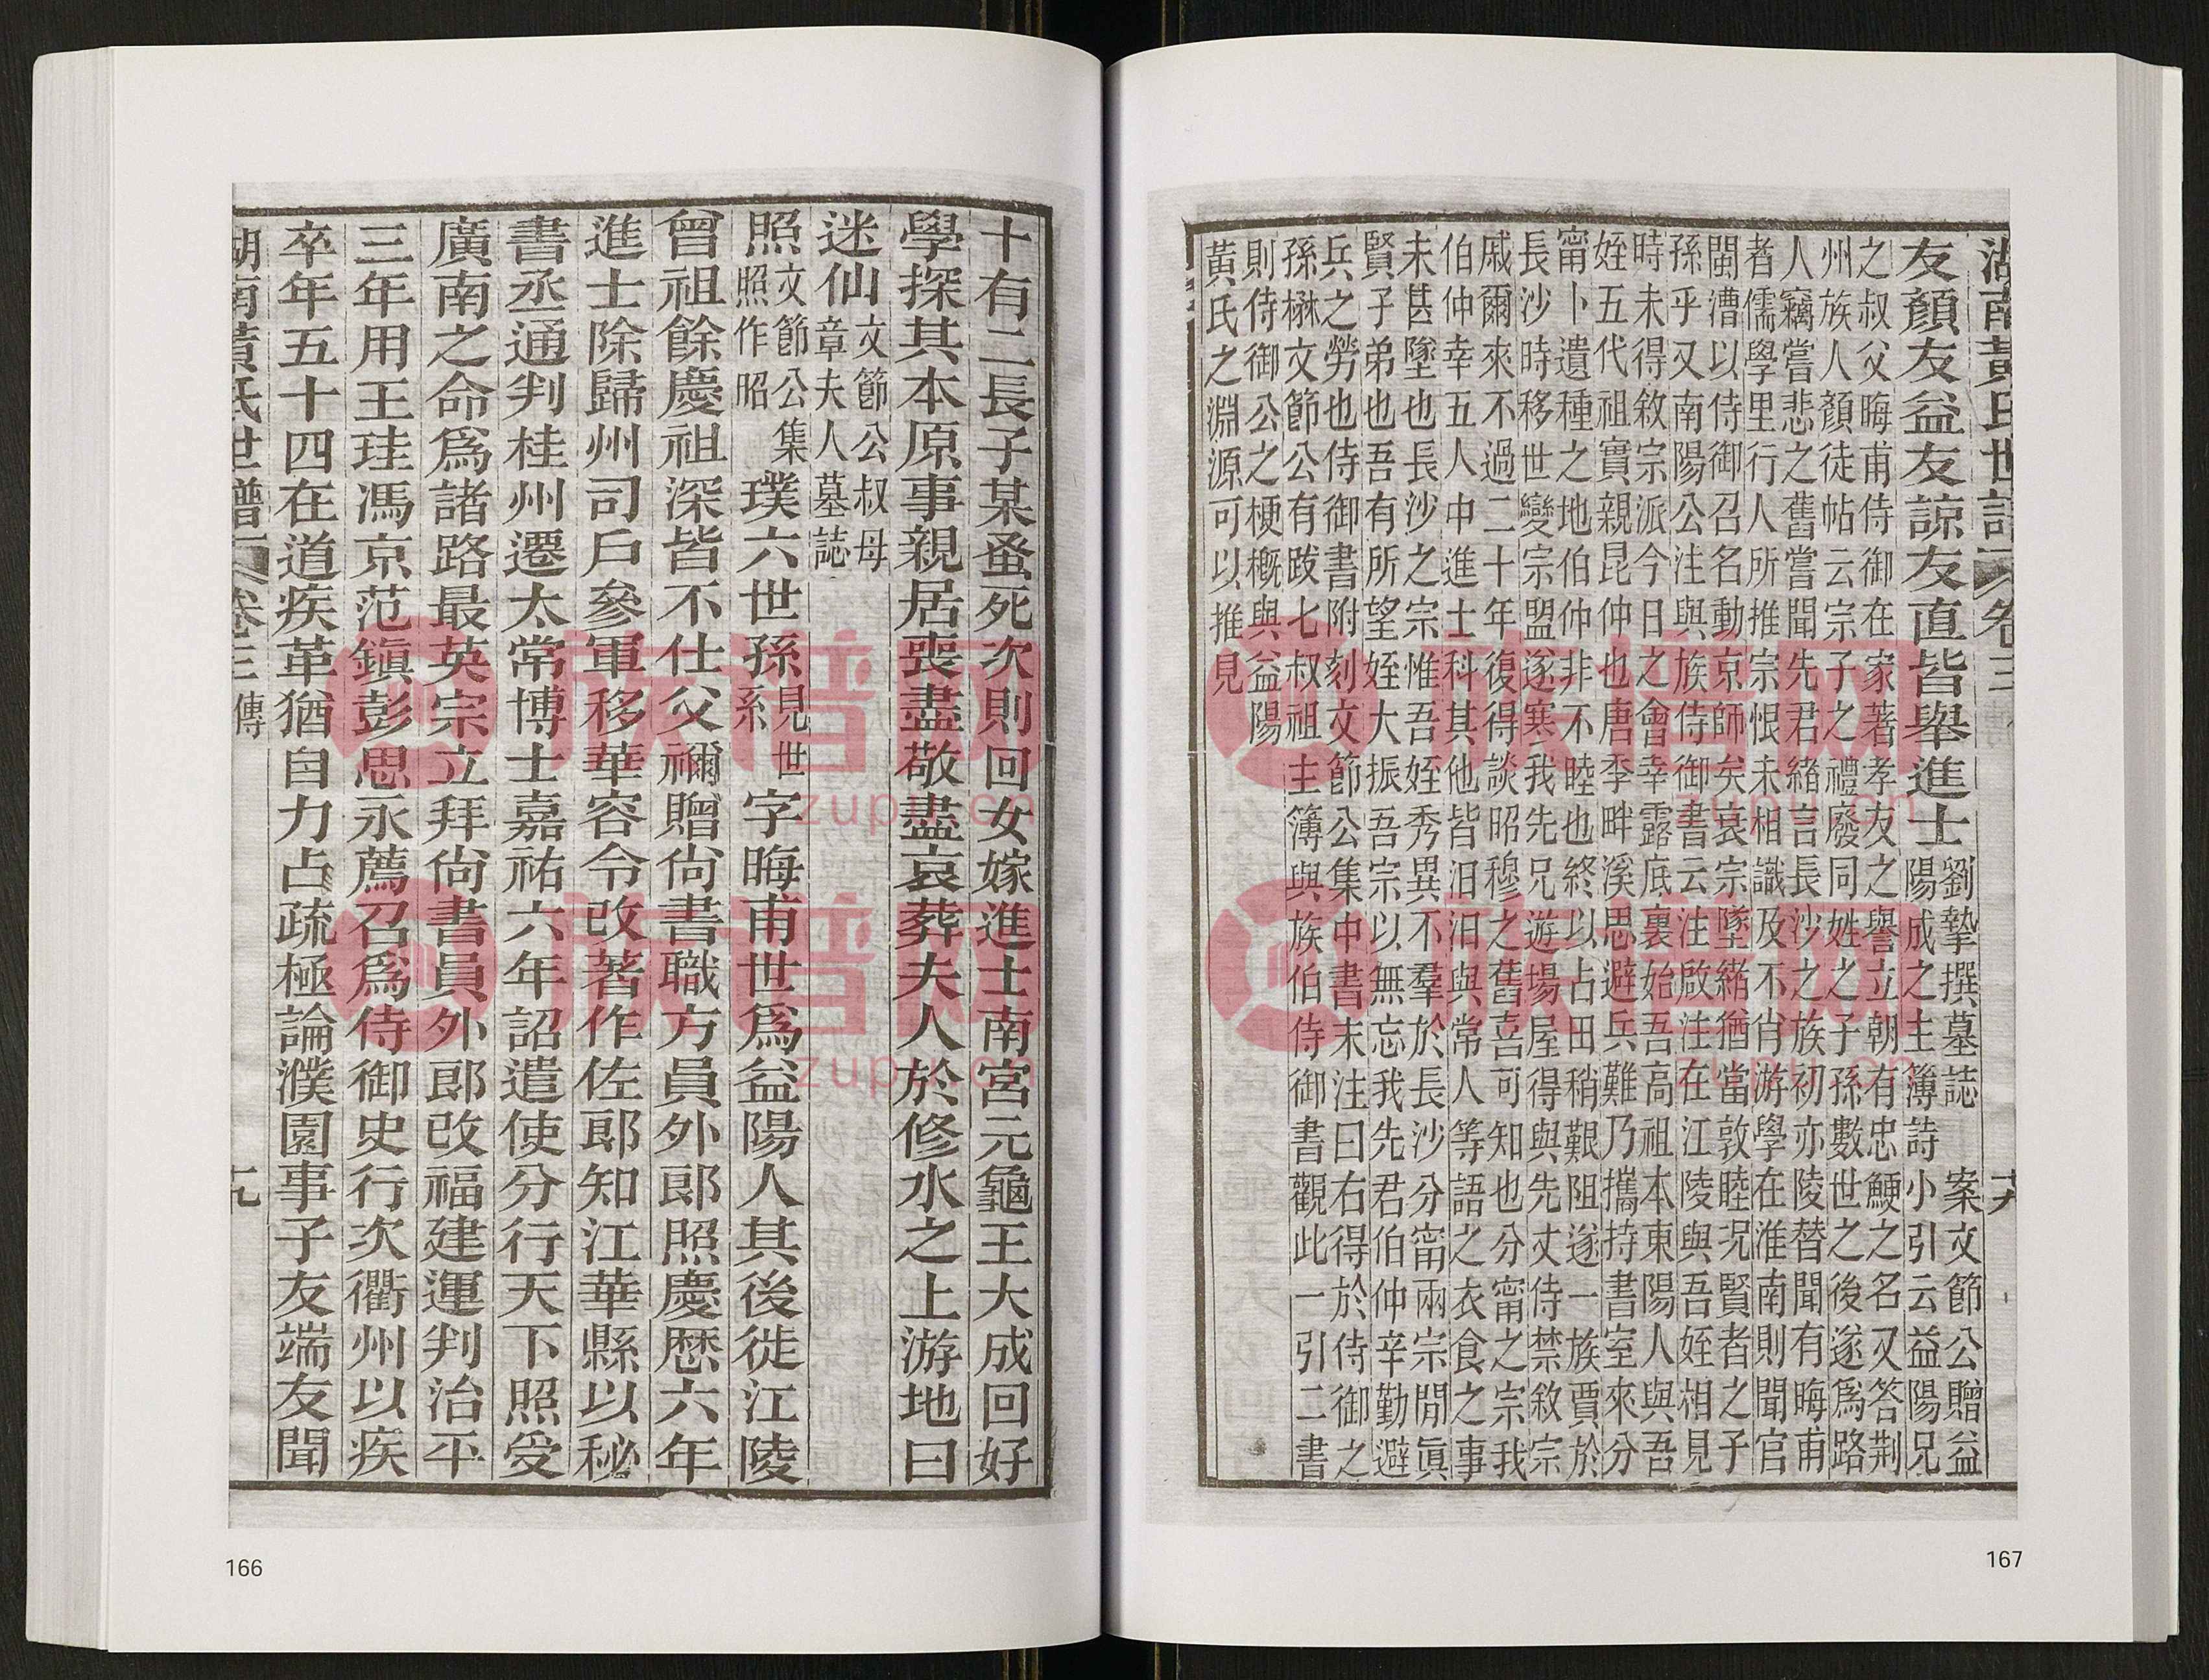 十有二長子某蚤死次則回女嫁進士南宮元龜王大成回好
學探其本原事親居喪盡敬盡哀葬夫人於修水之上游地曰
迷仙文節公叔母
章夫人墓誌
照文節公集
照作昭璞六世孫見世
系字晦甫世爲益陽人其後徙江陵
曾祖餘慶祖深皆不仕父禰贈尚書職方員外郎照慶歷六年
進士除歸州司戶參軍移華容令改著作佐郎知江華縣以秘
書丞通判桂州遷太常博士嘉祐六年詔遣使分行天下照受
廣南之命爲諸路最英宗立拜尚書員外郎改福建運判治平
三年用王珪馮京范鎮彭思永薦召爲侍御史行次衢州以疾
卒年五十四在道疾革猶自力占疏極論濮園事子友端友聞
湖南黃氏世譜 卷三 傳
166
湖南黃氏世譜 卷三
友顏友益友諒友直皆舉進士劉摯撰墓誌 案文節公贈益
陽成之主簿詩小引云益陽兄
之叔父晦甫侍御在家著孝友之譽立朝有忠鯁之名又答荆
州族人顏徒帖云宗子之禮廢同姓之子孫數世之後遂爲路
人竊嘗悲之舊嘗聞先君緒言長沙之族初亦陵替聞有晦甫
者儒學里行人所推宗恨未相識及不肖游學在淮南則聞官
閩漕以侍御召名動京師矣哀宗墜緒猶當敦睦況賢者之子
孫乎又南陽公注與族侍御書云注啟注在江陵與吾姪相見
時未得敘宗派今日之會幸露底裏始吾高祖本東陽人與吾
姪五代祖實親昆仲也唐季畔溪思避兵難乃攜持書室來分
甯卜遺種之地伯仲非不睦也終以占田稍艱阻遂一族賈於
長沙時移世變宗盟遂寒我先兄遊場屋得與先丈侍禁敘宗
戚爾來不過二十年復得談昭穆之舊喜可知也分甯之宗我
伯仲幸五人中進士科其他皆汨汨與常人等語之衣食之事
未甚墜也長沙之宗惟吾姪秀異不羣於長沙分甯兩宗閒眞
賢子弟也吾有所望姪大振吾宗以無忘我先君伯仲辛勤避
兵之勞也侍御書附刻文節公集中書末注曰右得於侍御之
孫楙文節公有跋七叔祖主簿與族伯侍御書觀此一引二書
則侍御公之梗概與益陽
黃氏之淵源可以推見
167
族谱网
zupu.cn
族谱网
zupu.cn
族谱网
zupu.cn
族谱网
zupu.cn